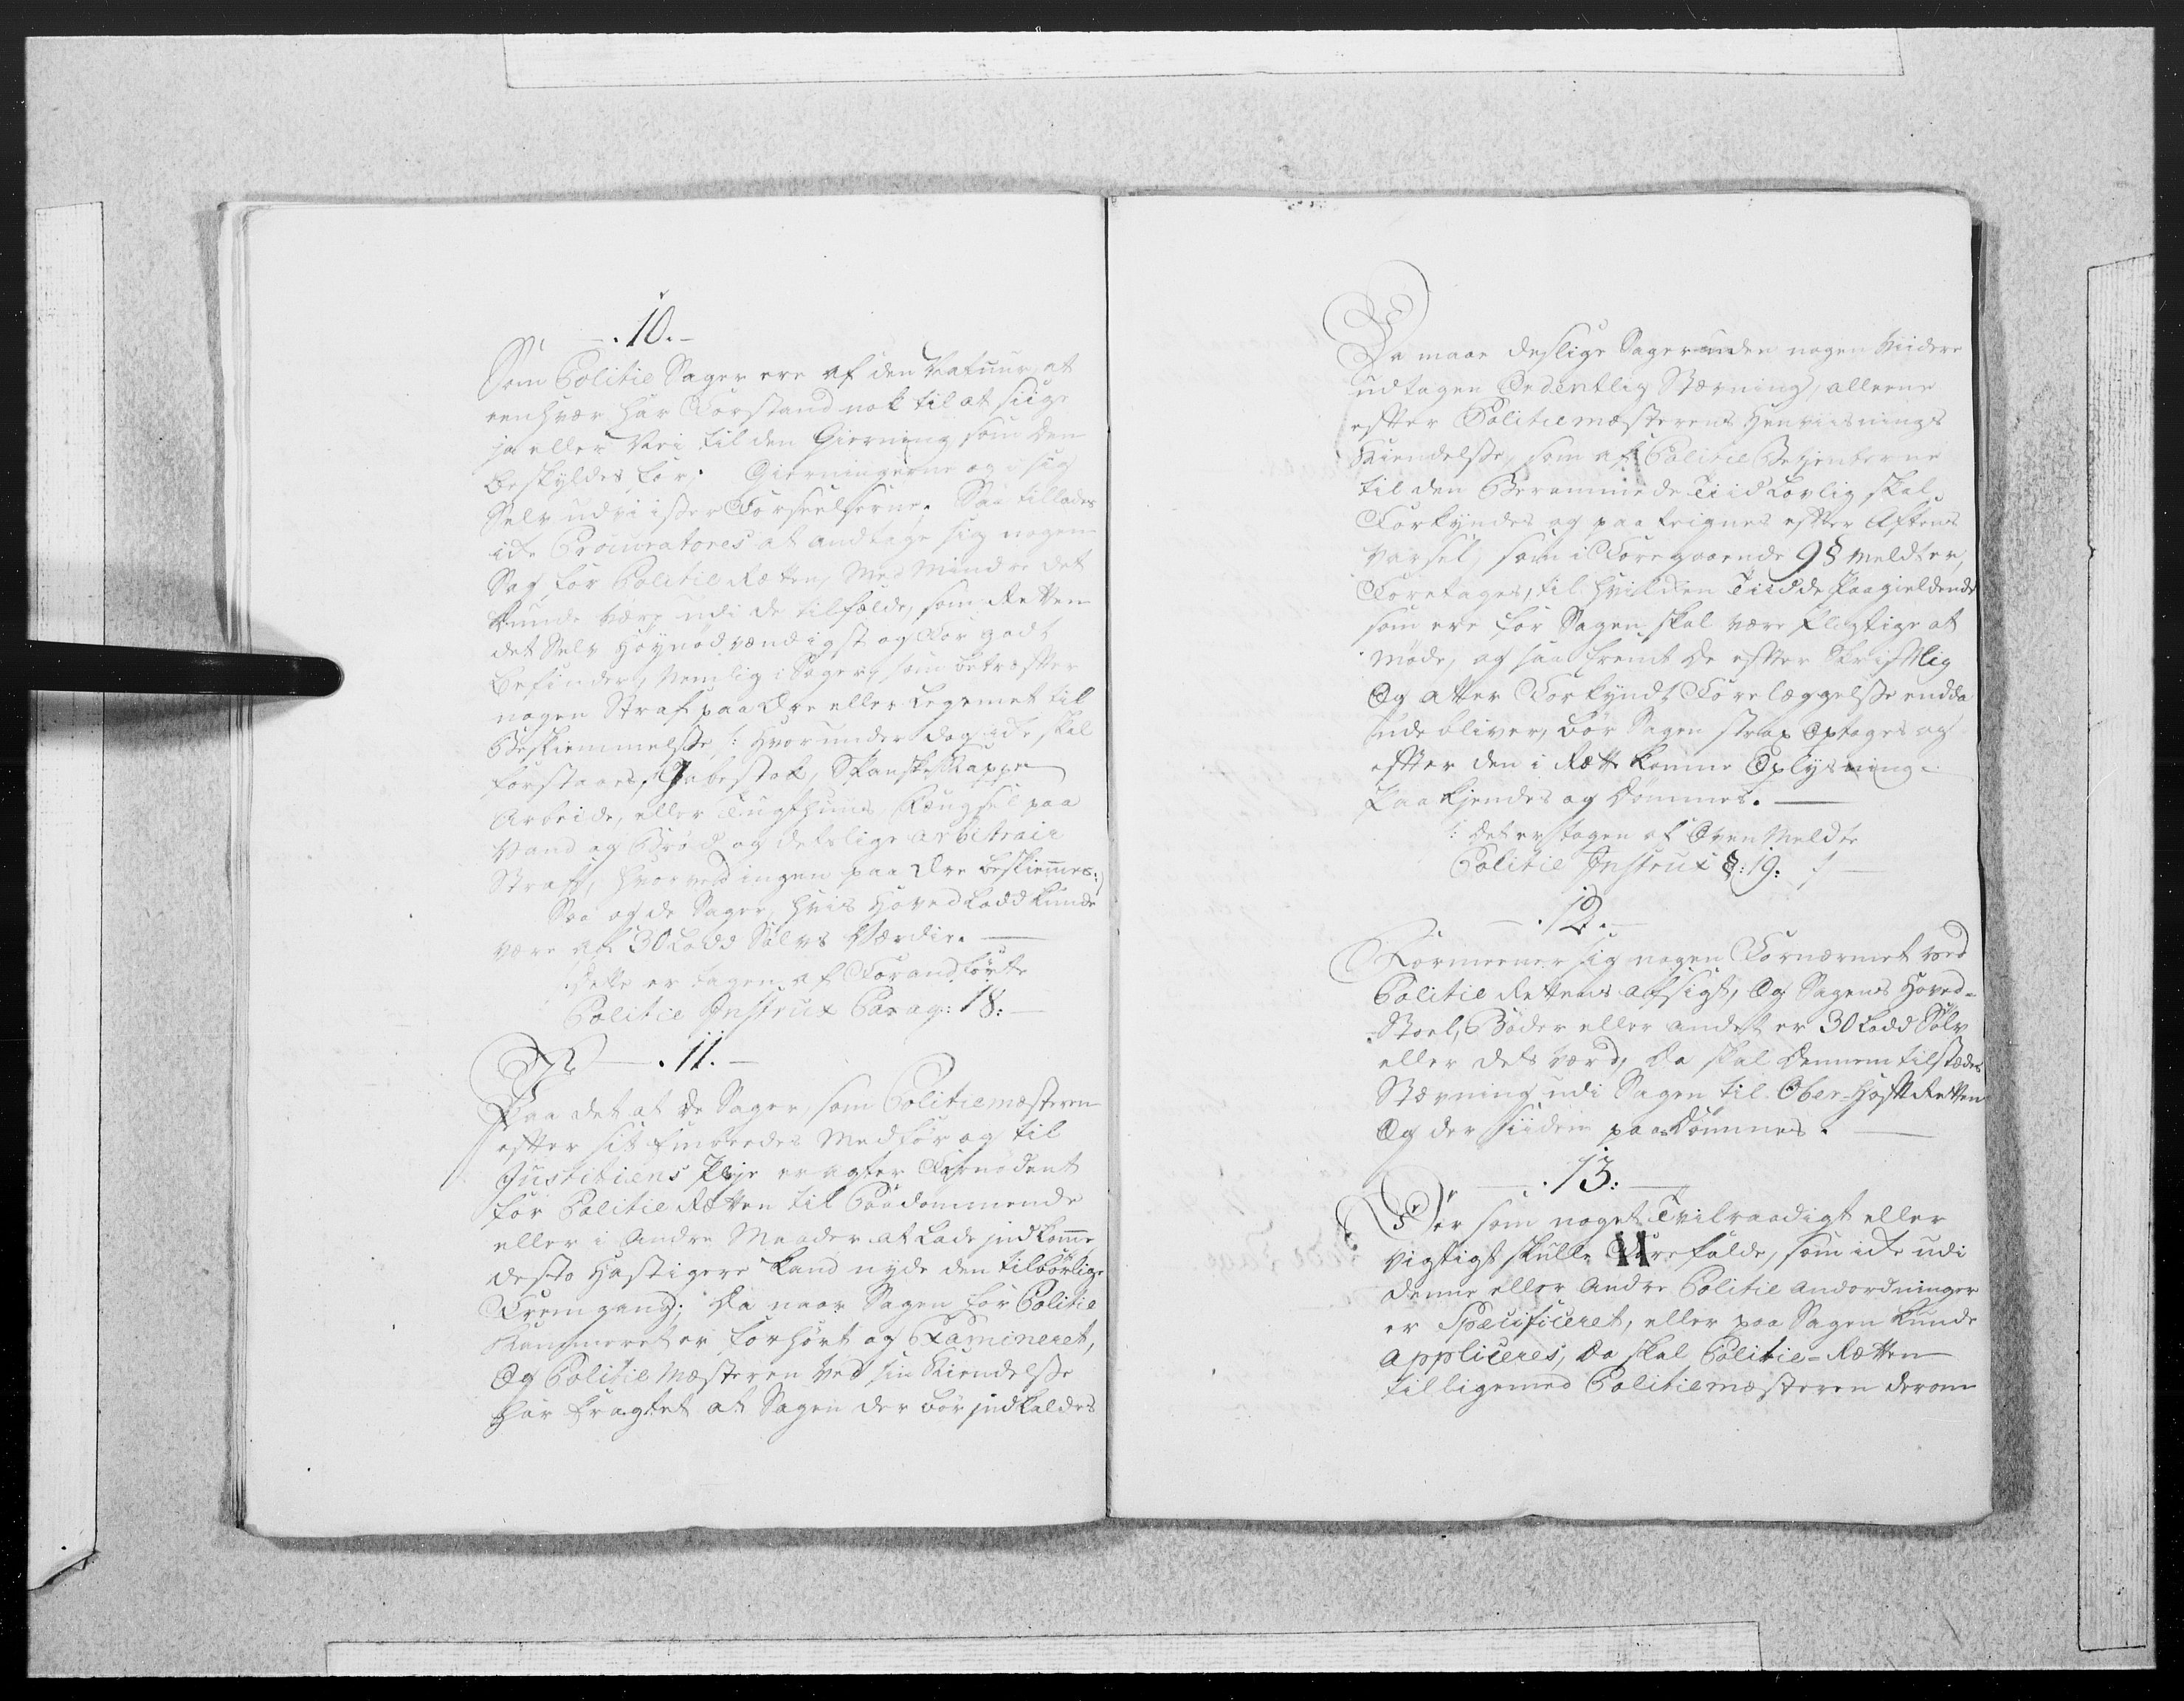 .10.
Som Politie Sager ere af den Natuur, at
eenhver har Forstand nok til at siige
ja eller Nei til den Gierning som den
beskyldes for; Gierningerne og i sig
Selv udvi iser Forseelserne. Saa tillades
icke Procuratores at andtage sig nogen
Sag for Politie Retten, Med Mindre det
kunde være udi de tilfælde, som Retten
det Selv Høynødvændigst og For godt
befinder, Nemlig i Sager, som betreffer
nogen Straf paa Ære eller Legemet til
Beskiemmelse /: Hvorunder dog icke skal
forstaaes, Gabestok, Spanske Kappe
Arbeide, eller Tugthuus Fængsel paa
Vand og Brød og deslige arbitrair
Straff, hvorved ingen paa Ære beskiemes:/
Saa og de Sager, hvis Hoved Lodd kunde
være af 30 Lodd Sølvs Værdie.
/: Dette er tagen af Forandførte
Politie Instrux Parag: 18:
.11.
Paa det at de Sager, som Politiemesteren
efter sit Embedes Medfør og til
Justitiens Pleje eragter Fornødent
for Politie Retten til Paadømmende
eller i Andre Maader at lade indkomme
desto Hastigere kand nyde den tilbørlige
Fremgang; Da naar Sagen for Politie
Kammeret er forhørt og Examineret,
Og Politie Mesteren ved sin Kiendelse
har Eragtet at Sagen der bør indkaldes
Da maae deslige Sager uden nogen Videre
udtagen Ordentlig Stævning, alleene
efter Politiemesterens Henviisnings
Kiendelse, som af Politie Betienterne
til den Berammede Tiid Lovlig skal
Forkyndes og paa teignes efter Aftens
Varsel, som i Foregaaende 9 § meldt er,
Foretages, til hvilken Tiid de Paagieldende
som ere for Sagen skal være pligtige at
møde, og saa fremt de efter Skriftlig
Og atter Forkyndt Forelæggelse endda
udebliver, bør Sagen strax Optages og
efter den i Rette komne Oplysning
Paakjendes og Dømmes.
/: Det er tagen af Oven Meldte
Politie Instrux §: 19: /
.12.
Formeener sig nogen Fornærmet ved
Politie Rettens Afsigt, Og Sagens Hoved-
-Stoel, Bøder eller andet er 30 Lodd Sølv
eller dets værd, Da skal dennem tilstædes
Stævning udi Sagen til Ober-Hof Retten
Og der siiden paa Dømmes.
.13:
Der som noget Tvilraadigt eller
vigtigt skulle Forefalde, som icke udi
denne eller Andre Politie Anordninger
er Specificeret, eller paa Sagen kunde
appliceres, da skal Politie-Retten
tilligemed Politiemesteren derom